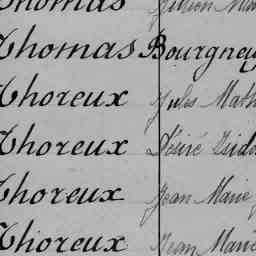 Thomas Julien
Thomas Bourgneuf
Thoreux Jules Math
Thoreux Désiré Isido
Thoreux Jean Marie
Thoreux Jean Marie